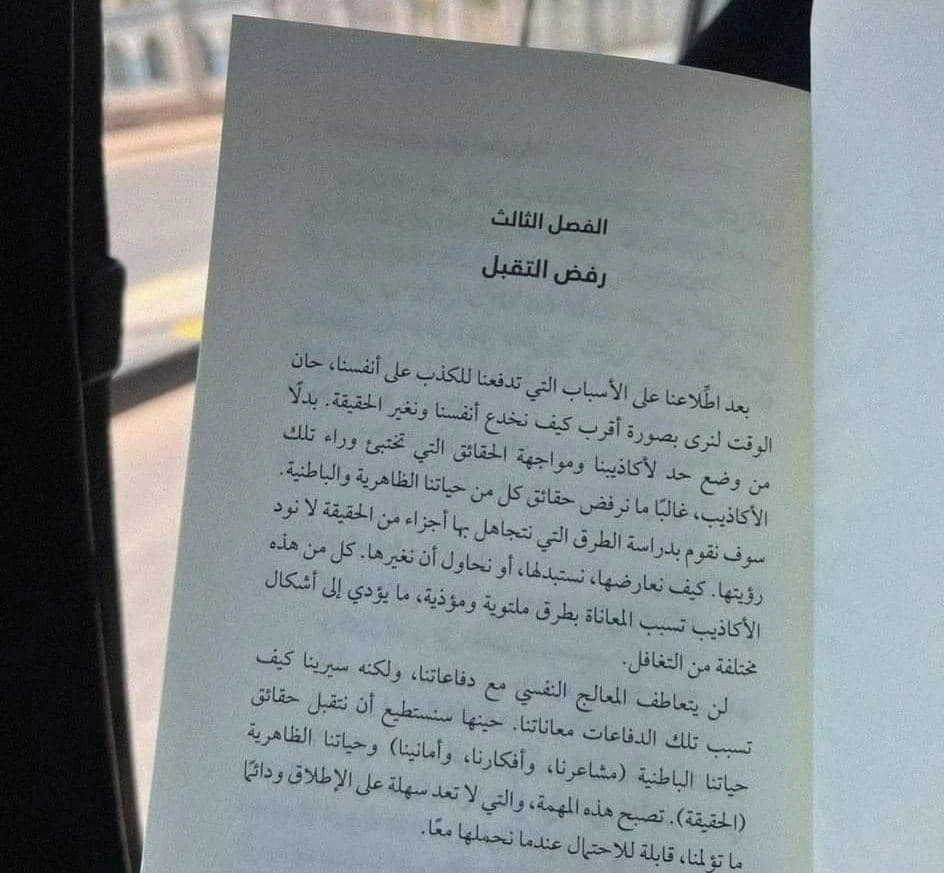 الفصل الثالث
رفض التقبل
بعد اطِّلاعنا على الأسباب التي تدفعنا للكذب على أنفسنا، حان
الوقت لنرى بصورة أقرب كيف نخدع أنفسنا ونغير الحقيقة. بدلًا
من وضع حد لأكاذيبنا ومواجهة الحقائق التي تختبئ وراء تلك
الأكاذيب، غالبًا ما نرفض حقائق كل من حياتنا الظاهرية والباطنية.
سوف نقوم بدراسة الطرق التي نتجاهل بها أجزاء من الحقيقة لا نود
رؤيتها. كيف نعارضها، نستبدلها، أو نحاول أن نغيرها. كل من هذه
الأكاذيب تسبب المعاناة بطرق ملتوية ومؤذية، ما يؤدي إلى أشكال
مختلفة من التغافل.
لن يتعاطف المعالج النفسي مع دفاعاتنا، ولكنه سيرينا كيف
تسبب تلك الدفاعات معاناتنا. حينها سنستطيع أن نتقبل حقائق
حياتنا الباطنية (مشاعرنا، وأفكارنا، وأمانينا) وحياتنا الظاهرية
(الحقيقة). تصبح هذه المهمة، والتي لا تعد سهلة على الإطلاق ودائمًا
ما تؤلمنا، قابلة للاحتمال عندما نحملها معًا.